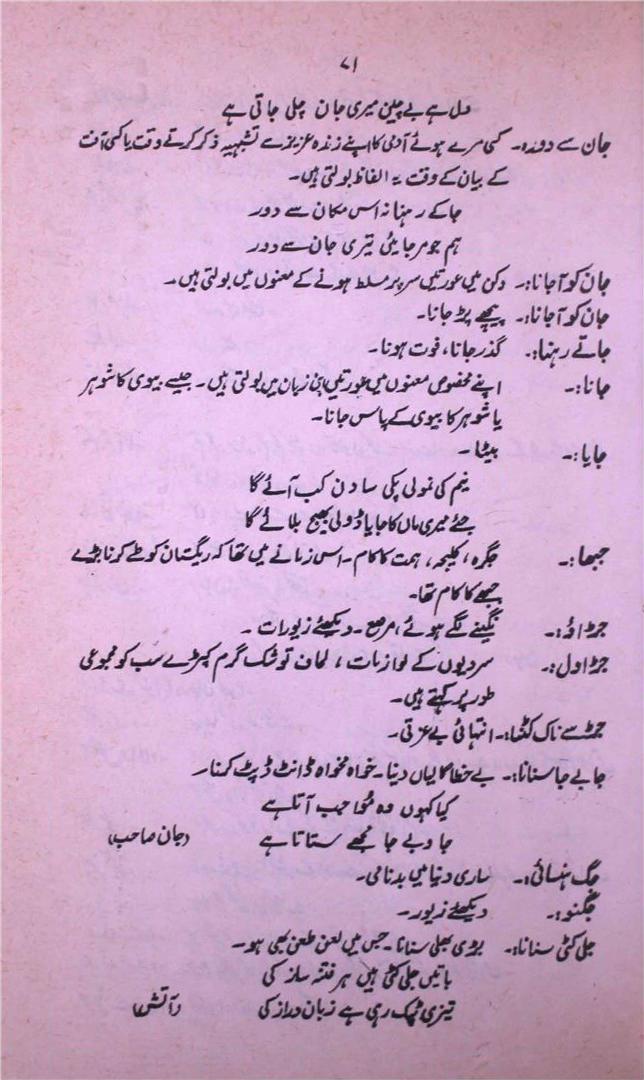 ۷۱
دل ہے بے چین میری جان چلی جاتی ہے
جان سے دور:۔ کسی مرے ہوئے آدمی کا اپنے زندہ عزیز سے تشبیہہ ذکر کرتے وقت یا کسی آفت
کے بیان کے وقت یہ الفاظ بولتی ہیں۔
جا کے رہنا نہ اس مکان سے دور
ہم جو مر جائیں تیری جان سے دور
جان کو آجانا:۔ دکن میں عورتیں سر پر مسلط ہونے کے معنوں میں بولتی ہیں۔
جان کو آجانا:۔ پیچھے پڑ جانا۔
جاتے رہنا:۔ گذر جانا، فوت ہونا۔
جانا:۔ اپنے مخصوص معنوں میں عورتیں اپنی زبان میں بولتی ہیں۔ جیسے بیوی کا شوہر
یا شوہر کا بیوی کے پاس جانا۔
جایا:۔ بیٹا۔
نیم کی نمولی پکی ساون کب آئے گا
جئے میری ماں کا جایا ڈولی بھیج بلائے گا
جبھا:۔ جگرہ، کلیجہ، ہمت کا کام۔ اس زمانے میں تھا کہ ریگستان کو طے کرنا بڑے
جبھے کا کام تھا۔
جڑاؤ:۔ نگینے لگے ہوئے، مرصع۔ دیکھئے زیورات۔
جڑاول:۔ سردیوں کے لوازمات، لحاف توشک گرم کپڑے سب کو مجموعی
طور پر کہتے ہیں۔
جڑ سے ناک کٹنا:۔ انتہائی بے عزتی۔
جا بے جا سنانا:۔ بے خطا گالیاں دینا۔ خواہ مخواہ ڈانٹ ڈپٹ کرنا۔
کیا کہوں وہ مُوا جب آتا ہے
جا و بے جا مجھے ستاتا ہے (جان صاحب)
جگ ہنسائی:۔ ساری دنیا میں بدنامی۔
جگنو:۔ دیکھئے زیور۔
جلی کٹی سنانا:۔ بری بھلی سنانا۔ جس میں لعن طعن بھی ہو۔
باتیں جلی کٹی ہیں ہر فتنہ ساز کی
تیزی ٹپک رہی ہے زبان دراز کی (آتش)